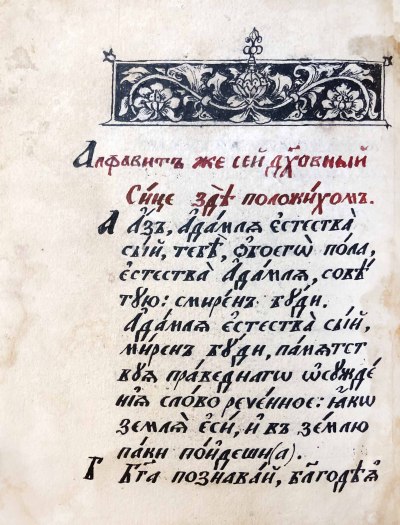 Алфави́тъ же се́й дх҃о́вный
Си́це здѣ̀ положи́хомъ.
А А́зъ, а҆да́млѧ є҆стества̀
сы́й, тебѣ̀, ѻ҆боегѡ̀ по́ла,
є҆стества̀ а҆да́млѧ, совѣ́
тую: смире́нъ бꙋ́ди.
А҆да́млѧ є҆стества̀ сы́й,
ми́ренъ бꙋ́ди, па́мѧтст
вꙋѧ пра́веднагѡ ѡ҆сꙋжде́
нїѧ сло́во рече́нное: ꙗ҆́кѡ
землѧ̀ є҆сѝ, и҆ въ зе́млю
па́ки по́йдеши(а).
Б Бг҃а познава́й, бл҃годѣѧ̀